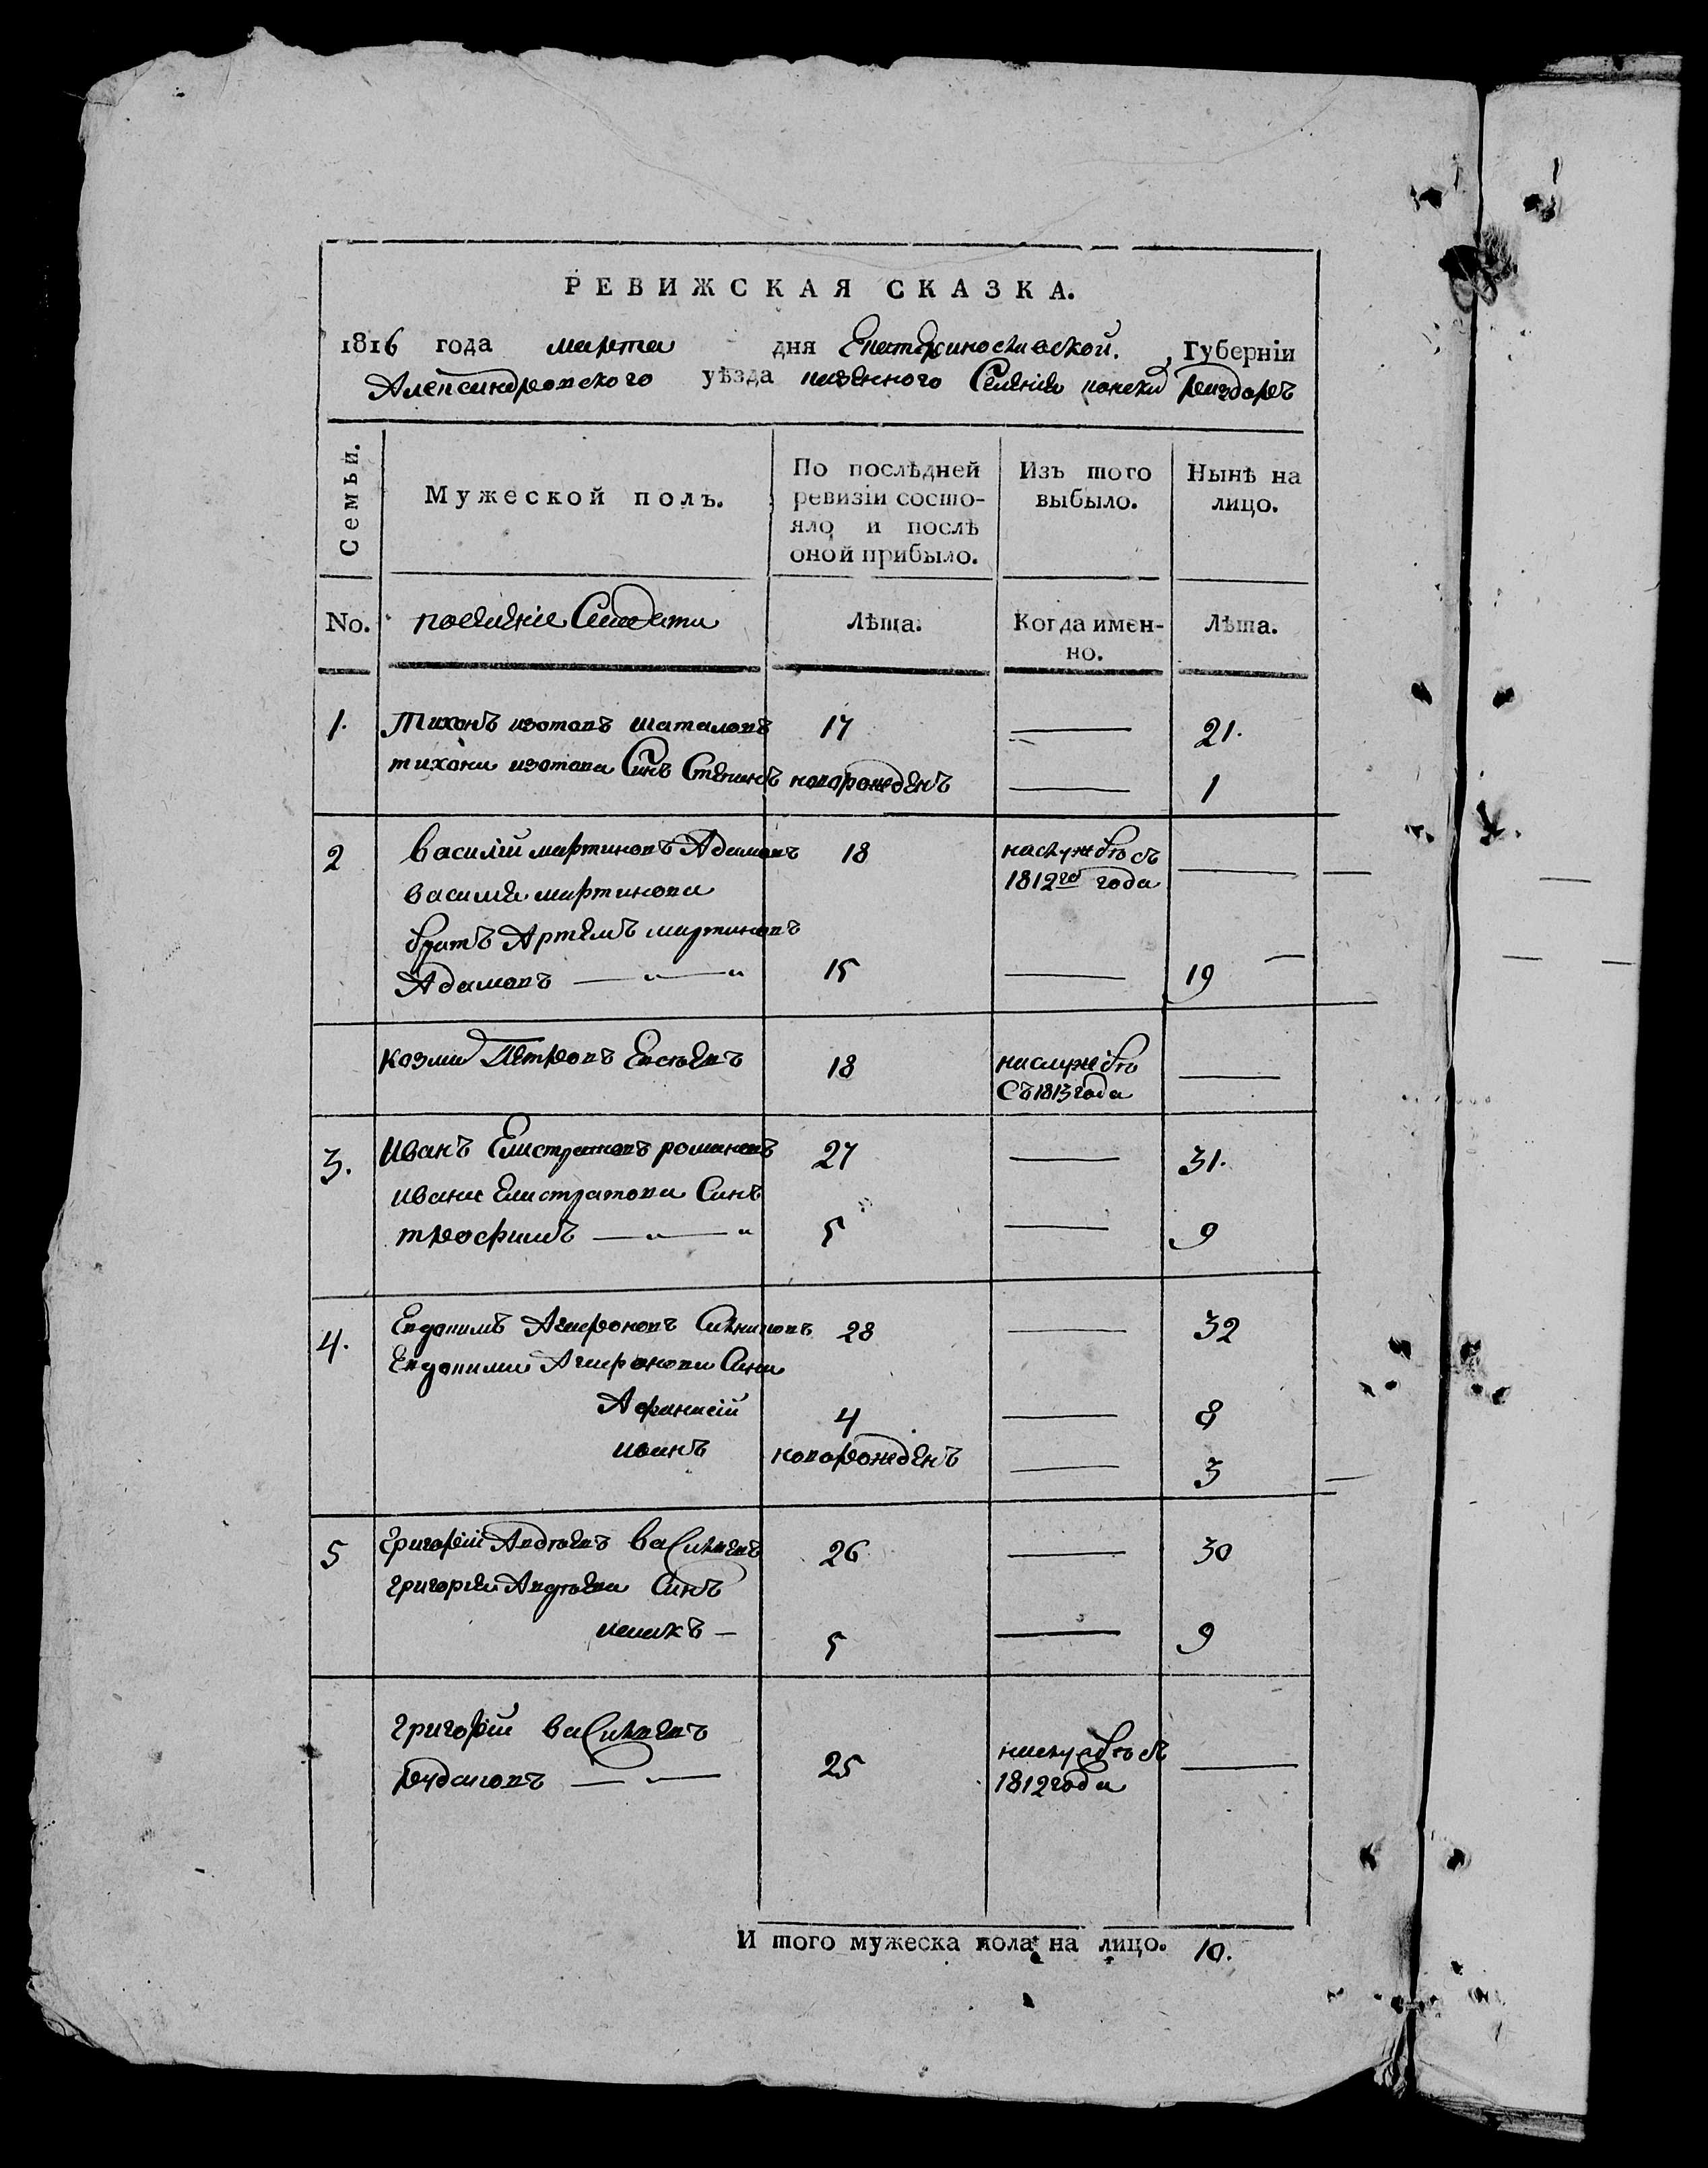 РЕВИЖСКАЯ СКАЗКА.
1816 года марта дня Екатеринославской Губернiи
Александровского уѣзда казенного Селения
Семьи.
Мужеской полъ.
По послѣдней ревизiи состояло и послѣ оной прибыло.
Изъ того выбыло.
Нынѣ на лицо.
No. Солдати Лѣта. Когда именно. Лѣта.
1. Тихонъ изотовъ шаталовъ 17 — 21.
тихона изотова Синъ Степанъ новорожденъ — 1
2 василiй мартиновъ Адамовъ 18 наслужбѣ съ 1812го года —
василия мартинова
братъ Артемъ мартиновъ
Адамовъ — 15 — 19
козма Петровъ Евсѣевъ 18 наслужбѣ Съ 1813 года —
3. иванъ Елистратовъ романовъ 27 — 31.
ивана Елистратова Синъ
трофимъ — 5 — 9
4. Евдокимъ 28 — 32
Евдокима Сини
Афанасiй 4 — 8
иванъ новорожденъ — 3
5 григорiй Авдѣевъ василевъ 26 — 30
григория Авдѣева Синъ
5 — 9
григорiй василевъ
рудаковъ — 25 наслужбѣ съ 1812 года —
И того мужеска пола на лицо. 10.